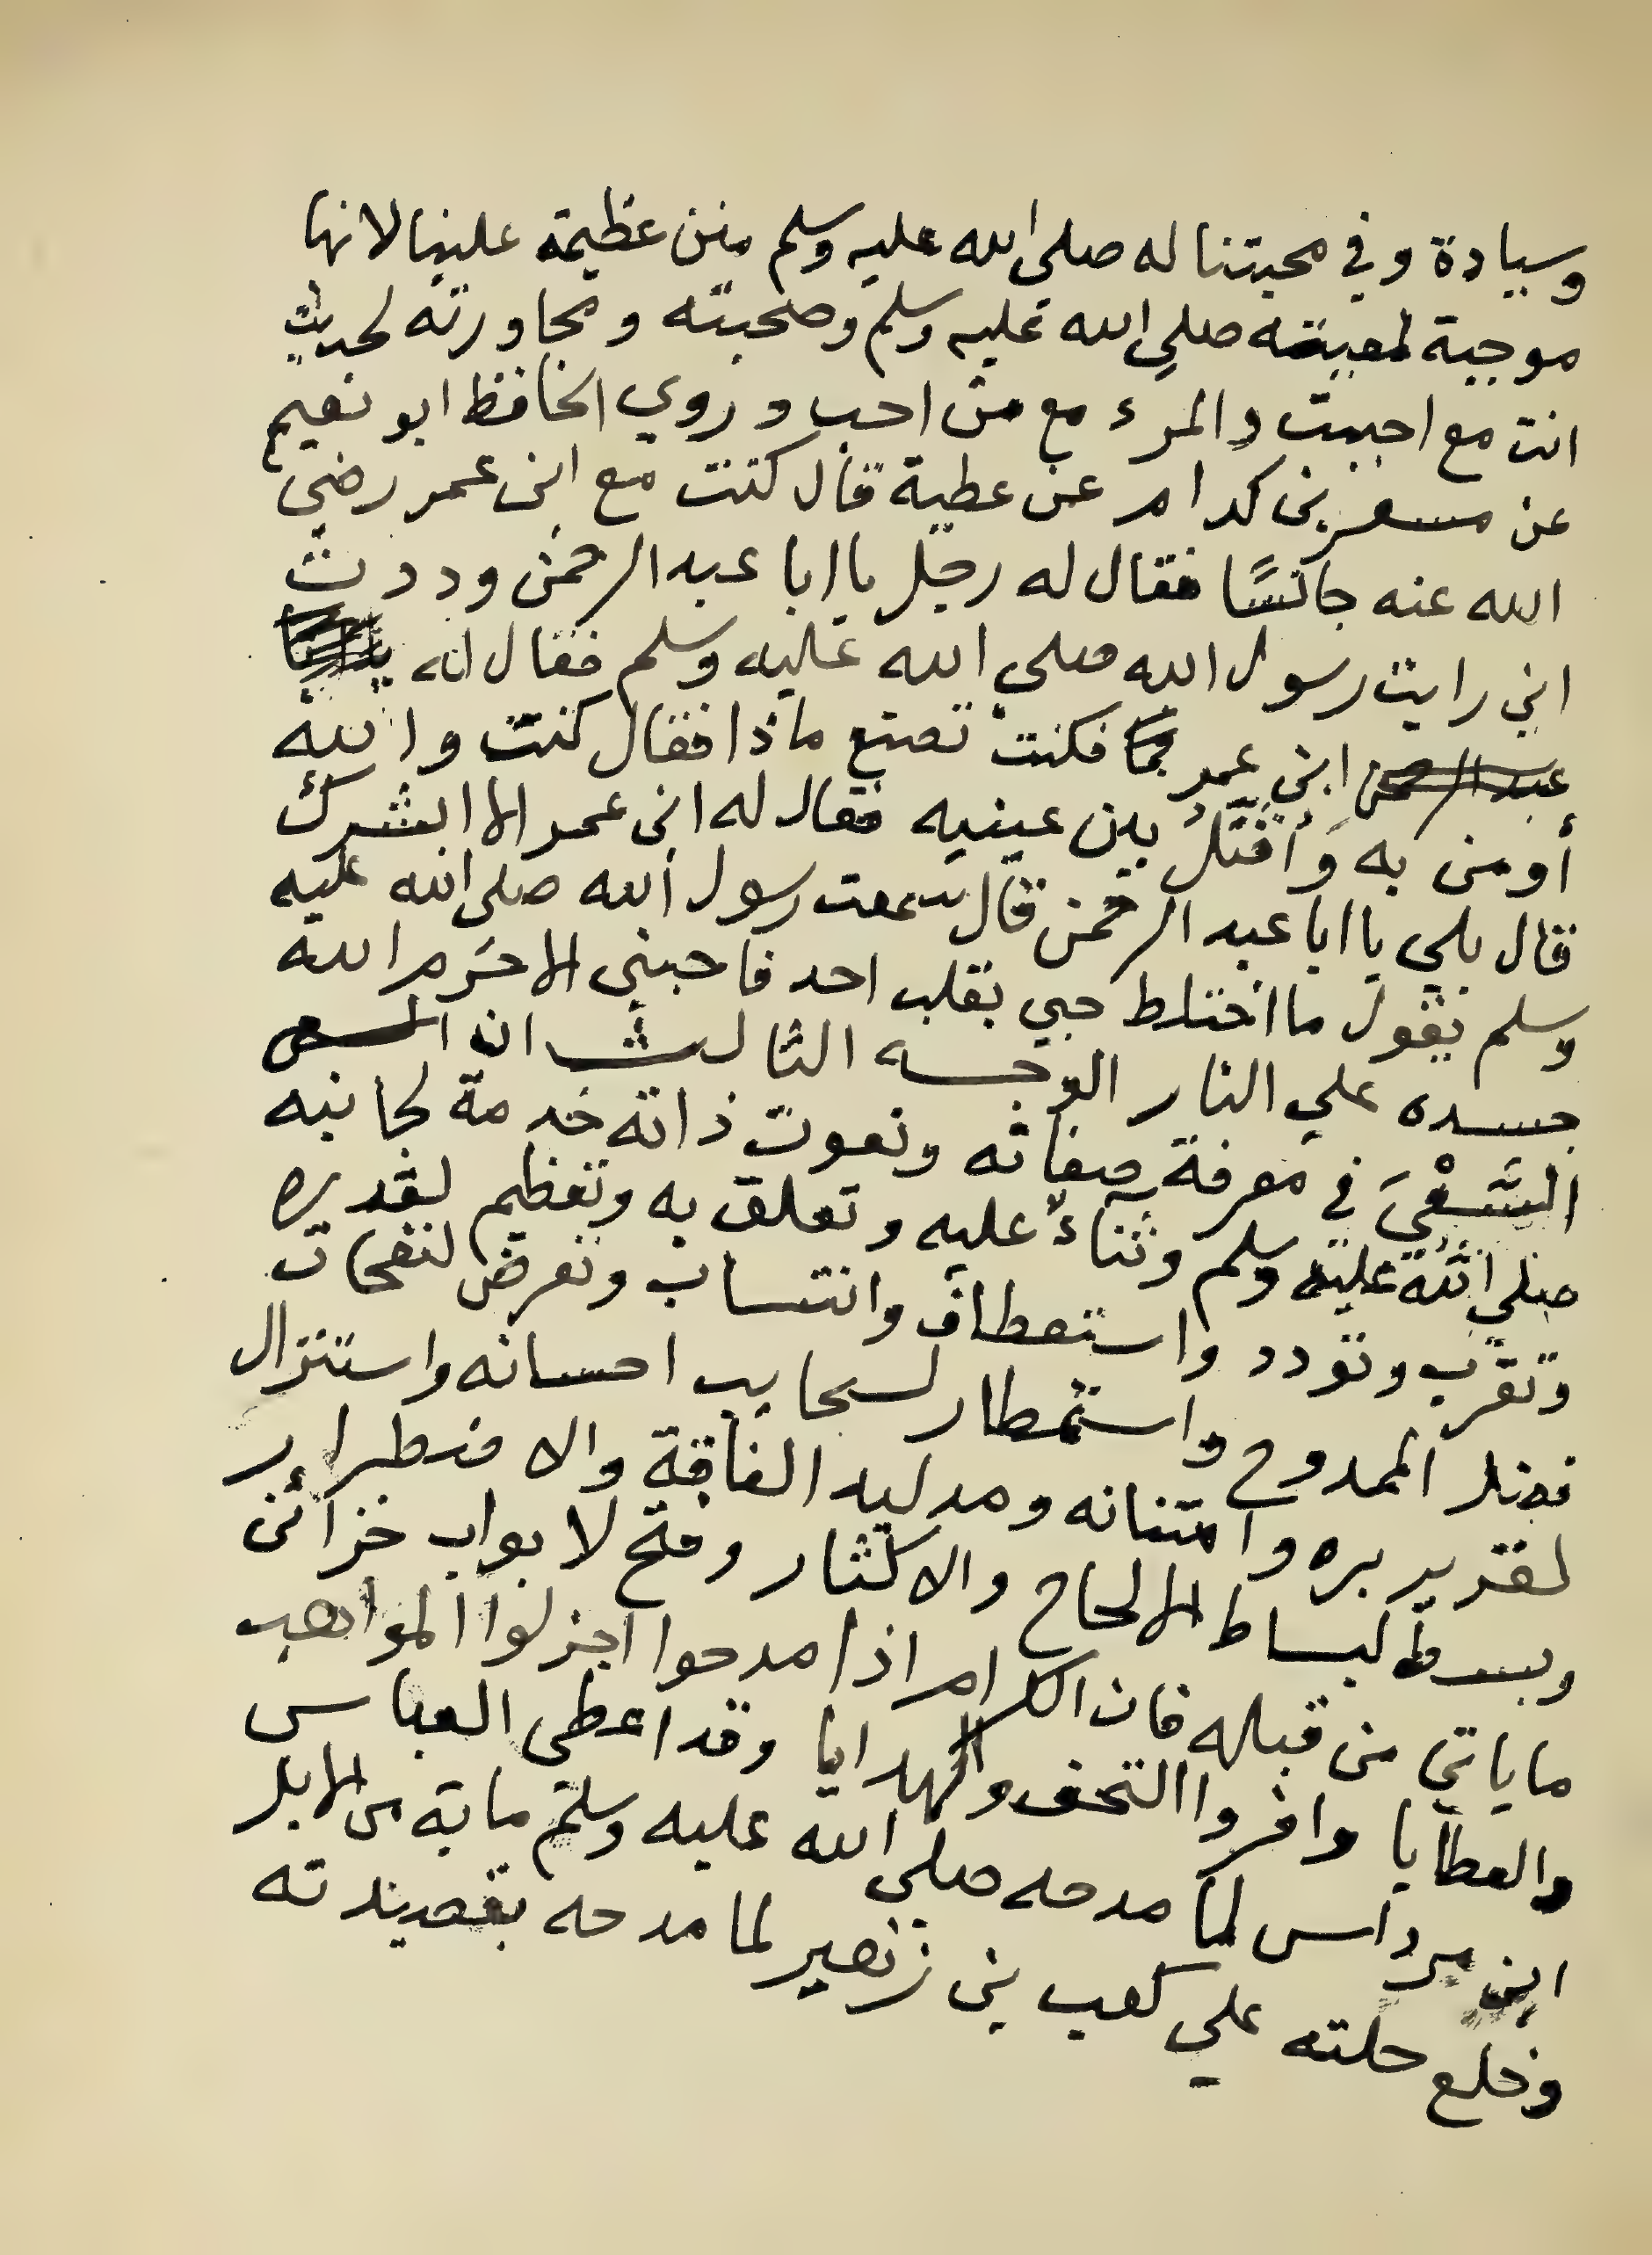 وسيادة وفي محبتنا له صلى الله عليه وسلم منن عظيمة علينا لانها
موجبة لمعيته صلي الله عليه وسلم وصحبته ومجاورته لحديث
انت مع احببت والمرء مع من احب وروي الحافظ ابو نعيم
عن مسعر بن كدام عن عطية قال كنت مع ابن عمر رضي
الله عنه جالسًا فقال له رجل يا ابا عبد الرحمن وددت
اني رايت رسول الله صلي الله عليه وسلم فقال له
عبد الرحمن ابن عمر فكنت تصنع ماذا فقال كنت والله
أومن به وَأُقَبِّلُ بين عينيه فقال له ابن عمر الا ابشرك
قال بلي يا ابا عبد الرحمن قال سمعت رسول الله صلى الله عليه
وسلم يقول ما اختلط حبي بقلب احد فاحبني الا حَرم الله
جسده علي النار الوجه الثالث ان
السَّعْيَ في معرفة صفاته ونعوت ذاته خدمة لجانبه
صلي الله عليه وسلم وثناءً عليه وتعلق به وتعظيم لقدره
وتقرب وتودد واستعطاف وانتساب وتعرض لنفحات
فضل الممدوح واستمطار لسحايب احسانه واستنزال
لغزير بره وامتنانه ومد ليد الفاقة والاضطرار
وبسط لبساط الالحاح والاكثار وفتح لابواب خزائن
ما ياتي من قبله فان الكرام اذا مدحوا اجزلوا المواهب
والعطايا وافروا التحف والهدايا وقد اعطى العباس
ابن مرداس لما مدحه صلي الله عليه وسلم ماية من الابل
وخلع حلته علي كعب بن زهير لما مدحه بقصيدته